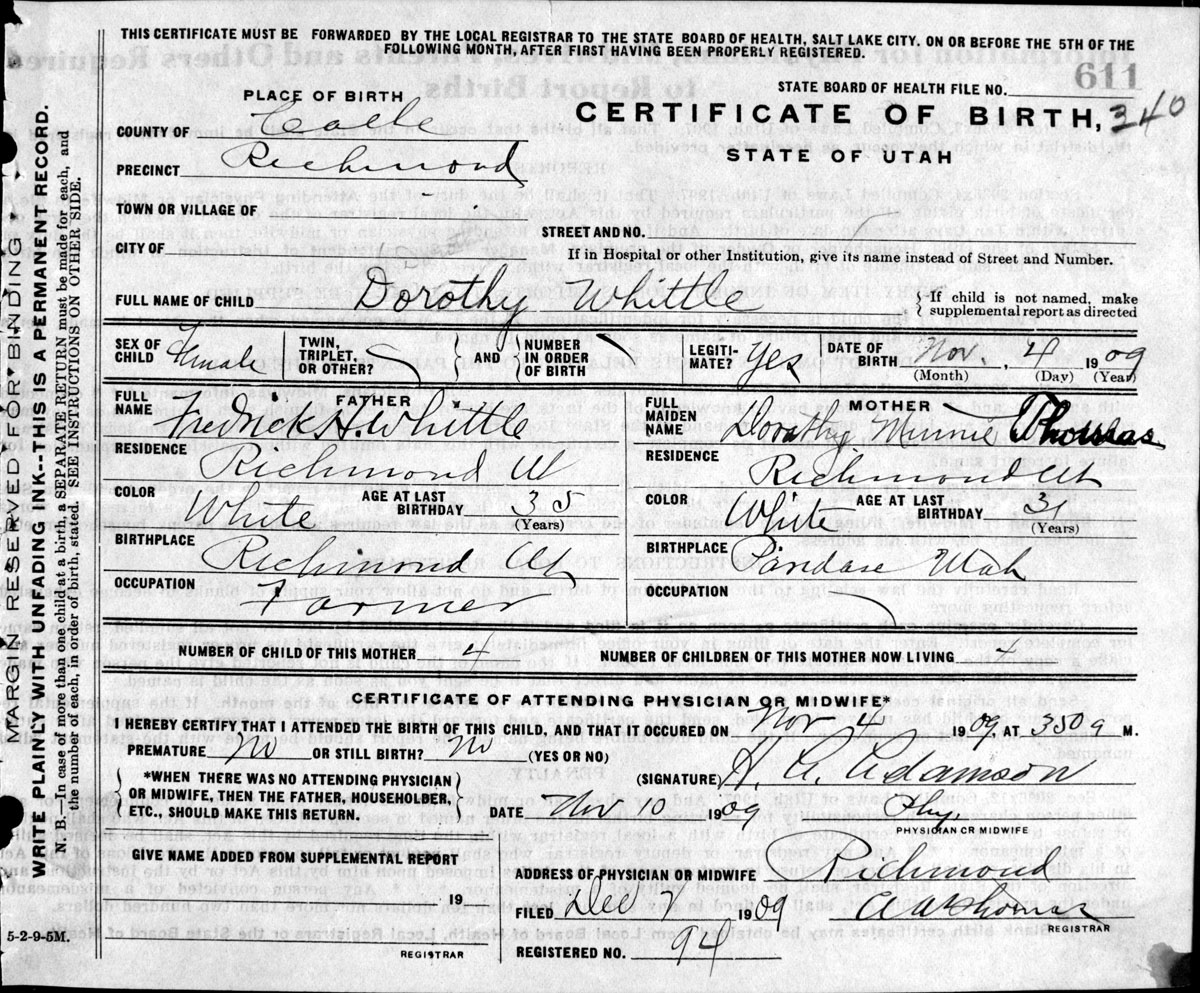 THIS CERTIFICATE MUST BE FORWARDED BY THE LOCAL REGISTRAR TO THE STATE BOARD OF HEALTH, SALT LAKE CITY. ON OR BEFORE THE 5TH OF THE
FOLLOWING MONTH, AFTER FIRST HAVING BEEN PROPERLY REGISTERED.
611
STATE BOARD OF HEALTH FILE NO.
PLACE OF BIRTH
CERTIFICATE OF BIRTH, 340
STATE OF UTAH
COUNTY OF
PRECINCT Richmond
TOWN OR VILLAGE OF
STREET AND NO.
CITY OF
If in Hospital or other Institution, give its name instead of Street and Number.
FULL NAME OF CHILD Dorothy Whittle
If child is not named, make
supplemental report as directed
SEX OF CHILD Female
TWIN, TRIPLET, OR OTHER?
AND NUMBER IN ORDER OF BIRTH
LEGITI-MATE? Yes
DATE OF BIRTH Nov, 4 1909
(Month) (Day) (Year)
FATHER
FULL NAME Fredrick H. Whittle
RESIDENCE Richmond U
COLOR White
AGE AT LAST BIRTHDAY 35
(Years)
BIRTHPLACE Richmond Ut
OCCUPATION Farmer
MOTHER
FULL MAIDEN NAME Dorathy Minnie Thomas
RESIDENCE Richmond Ut
COLOR White
AGE AT LAST BIRTHDAY 31
(Years)
BIRTHPLACE Utah
OCCUPATION
NUMBER OF CHILD OF THIS MOTHER 4
NUMBER OF CHILDREN OF THIS MOTHER NOW LIVING 4
CERTIFICATE OF ATTENDING PHYSICIAN OR MIDWIFE*
I HEREBY CERTIFY THAT I ATTENDED THE BIRTH OF THIS CHILD, AND THAT IT OCCURED ON Nov 4 1909, AT 350 a M.
PREMATURE No OR STILL BIRTH? No (YES OR NO)
*WHEN THERE WAS NO ATTENDING PHYSICIAN
OR MIDWIFE, THEN THE FATHER, HOUSEHOLDER,
ETC., SHOULD MAKE THIS RETURN.
(SIGNATURE) Adamson
DATE Nov 10 1909
Phy.
PHYSICIAN OR MIDWIFE
GIVE NAME ADDED FROM SUPPLEMENTAL REPORT
19
REGISTRAR
ADDRESS OF PHYSICIAN OR MIDWIFE Richmond
FILED Dec 7 1909
REGISTRAR
REGISTERED NO. 94
5-2-9-5M.
MARGIN RESERVED FOR BINDING
WRITE PLAINLY WITH UNFADING INK---THIS IS A PERMANENT RECORD.
N. B.—In case of more than one child at a birth, a SEPARATE RETURN must be made for each, and
the number of each, in order of birth, stated. SEE INSTRUCTIONS ON OTHER SIDE.